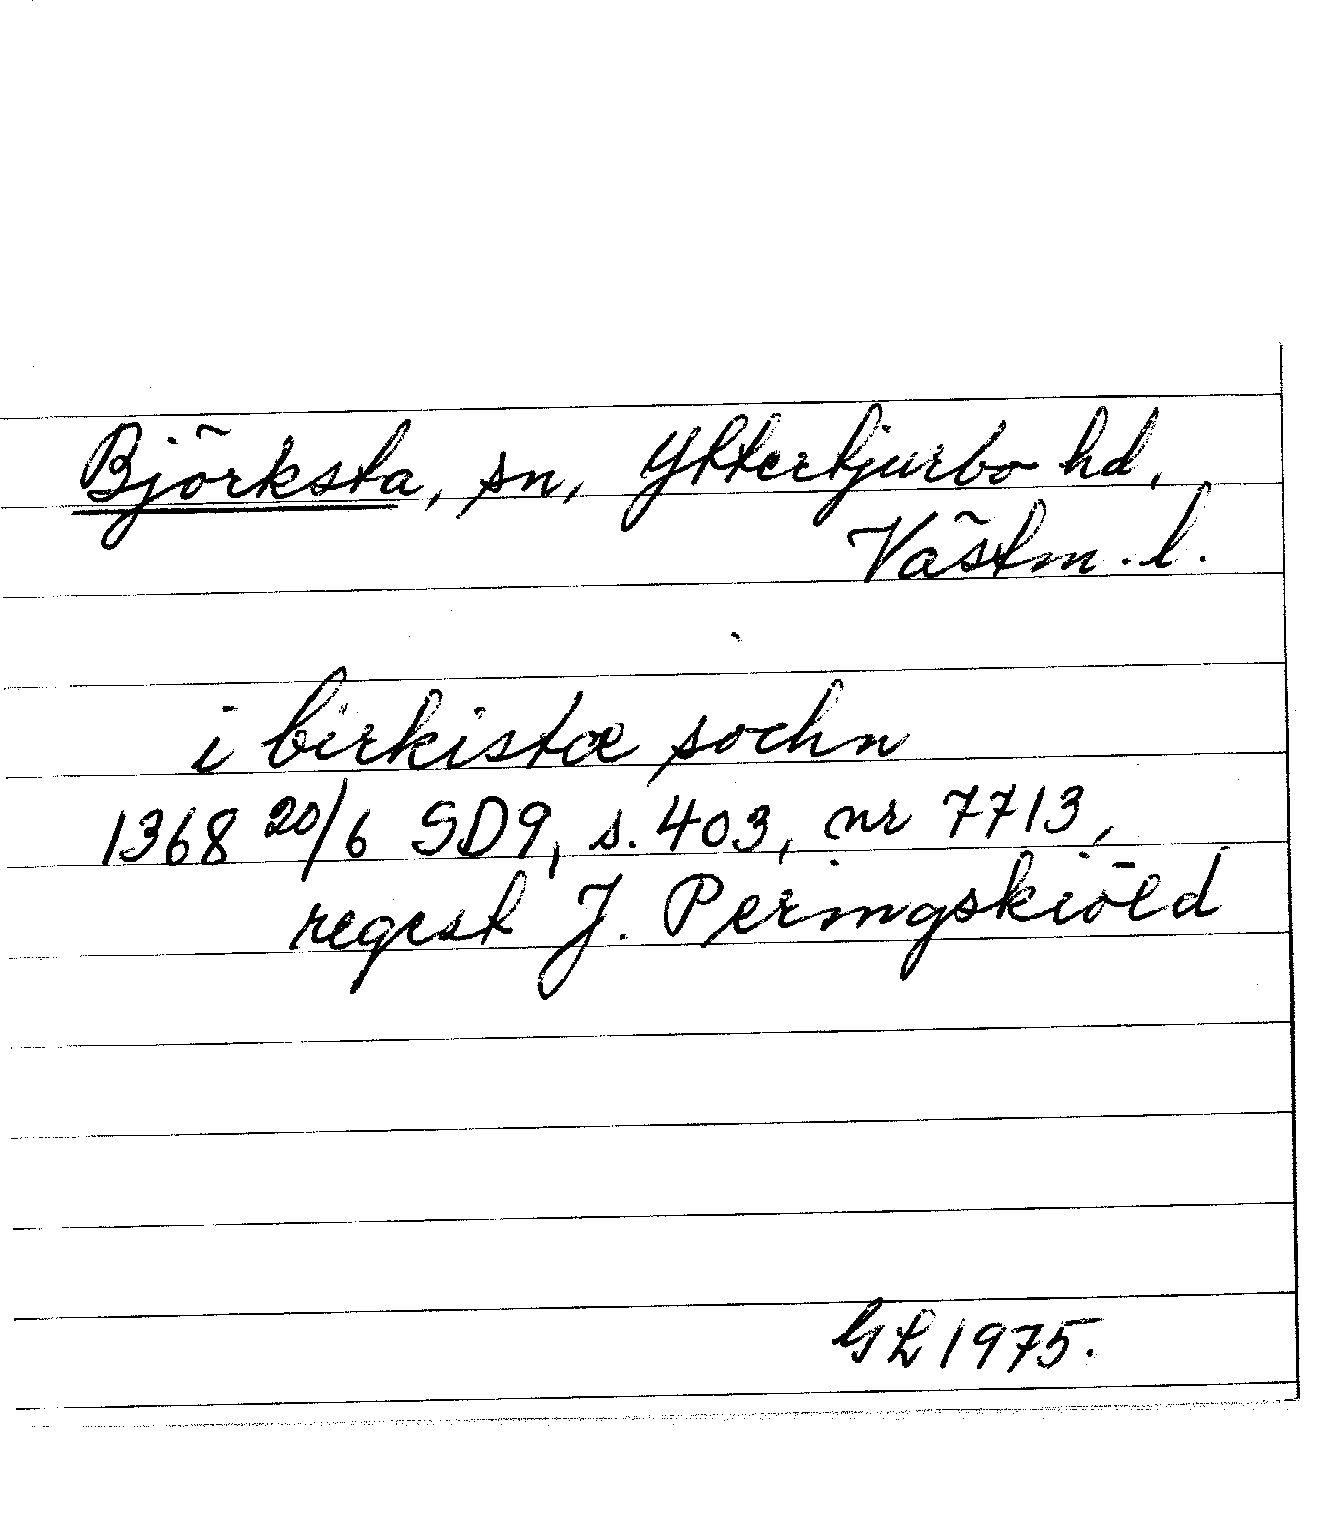 Björksta, sn, Yttertjurbo hd,
Västm. l.
i birkistæ sochn
1368 20/6 SD9, s. 403, nr 7713,
regest J. Peringskiöld
GL 1975.